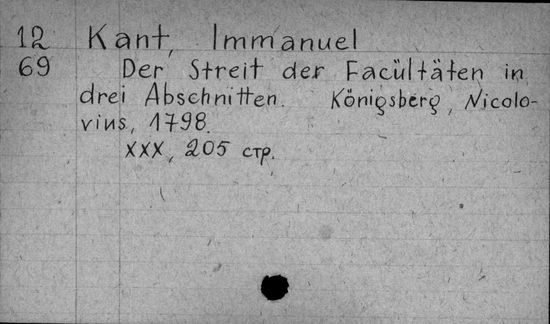 12 Kant, Immanuel
69 Der Streit der Facültäten in
drei Abschnitten. Königsberg, Nicolo-
vius, 1798.
XXX, 205 стр.